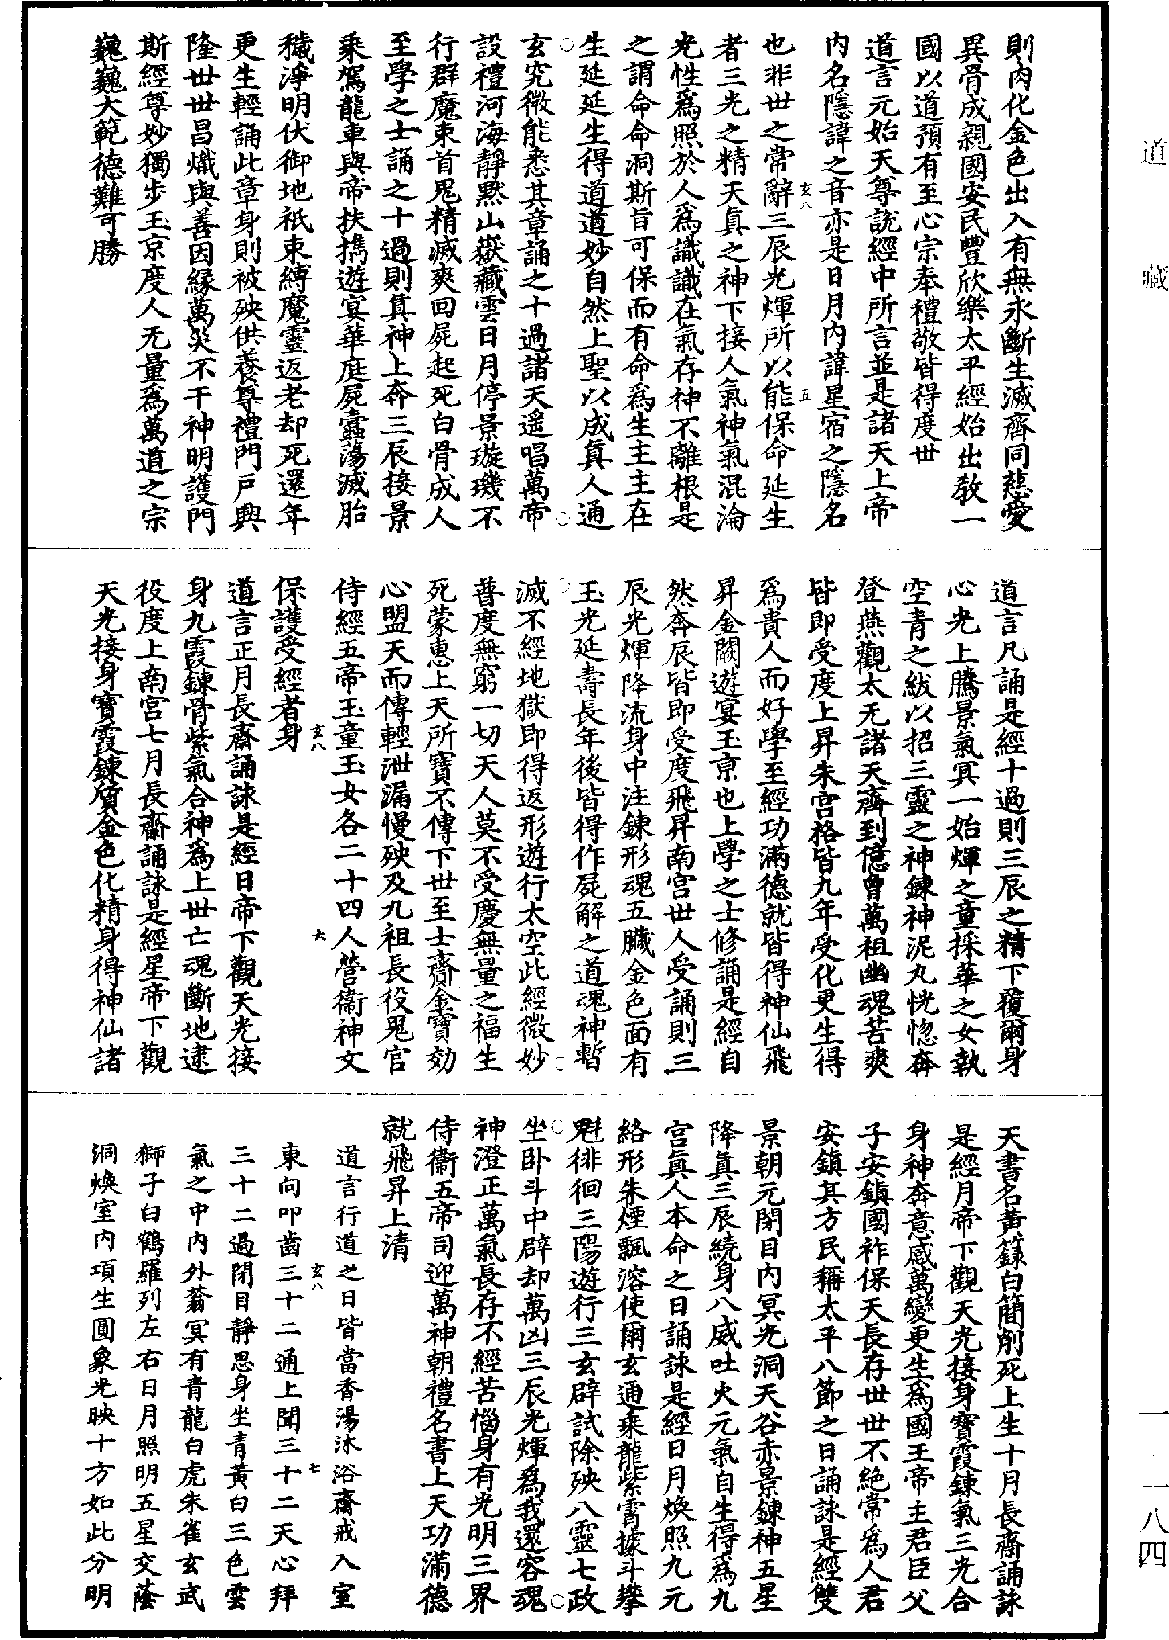 則肉化金色出入有無永斷生滅齊同慈愛
異骨成親國安民豐欣樂太平經始出教一
國以道預有至心宗奉禮敬皆得度世
道言元始天尊說經中所言並是諸天上帝
內名隱諱之音亦是日月內諱星宿之隱名
也非世之常辭三辰光煇所以能保命延生
玄八
五
者三光之精天真之神下接人氣神氣混淪
光性爲照於人爲識識在氣存神不離根是
之謂命命洞斯旨可保而有命爲生主主在
生延延生得道道妙自然上聖以成真人通
玄究微能悉其章誦之十過諸天遥唱萬帝
設禮河海靜默山嶽藏雲日月停景璇璣不
行群魔束首鬼精滅爽回屍起死白骨成人
至學之士誦之十過則其神上奔三辰接景
乘駕龍車與帝扶擕遊宴華庭屍蠹蕩滅胎
穢淨明伏御地祇束縛魔靈返老却死還年
更生輕誦此章身則被殃供養尊禮門戶興
隆世世昌熾與善因緣萬災不干神明護門
斯經尊妙獨步玉京度人无量爲萬道之宗
巍巍大範德難可勝
道言凡誦是經十過則三辰之精下覆爾身
心光上騰景氣冥一始煇之童採華之女執
空青之紱以招三靈之神鍊神泥丸恍惚奔
登燕觀太无諸天齊到億曾萬祖幽魂苦爽
皆即受度上昇朱宮格皆九年受化更生得
爲貴人而好學至經功滿德就皆得神仙飛
昇金闕遊宴玉京也上學之士修誦是經自
然奔辰皆即受度飛昇南宮世人受誦則三
辰光煇降流身中注鍊形魂五臟金色面有
玉光延壽長年後皆得作屍解之道魂神暫
滅不經地獄即得返形遊行太空此經微妙
普度無窮一切天人莫不受慶無量之福生
死蒙惠上天所寶不傳下世至士齎金寶効
心盟天而傳輕泄漏慢殃及九祖長役鬼官
侍經五帝玉童玉女各二十四人營衛神文
玄八
六
保護受經者身
道言正月長齋誦詠是經日帝下觀天光接
身九霞鍊骨紫氣合神爲上世亡魂斷地逮
役度上南宮七月長齋誦詠是經星帝下觀
天光接身寶霞鍊質金色化精身得神仙諸
天書名黃籙白簡削死上生十月長齋誦詠
是經月帝下觀天光接身寶霞鍊氣三光合
身神奔意感萬變更生爲國王帝主君臣父
子安鎮國祚保天長存世世不絕常爲人君
安鎮其方民稱太平八節之日誦詠是經雙
景朝元閉目內冥光洞天谷赤景鍊神五星
降真三辰繞身八威吐火元氣自生得爲九
宮真人本命之日誦詠是經日月煥照九元
絡形朱煙飄溶使爾玄通乘龍紫霄據斗攀
魁徘徊三陽遊行三玄辟試除殃八靈七政
坐卧斗中辟却萬凶三辰光煇爲我還容魂
神澄正萬氣長存不經苦惱身有光明三界
侍衛五帝司迎萬神朝禮名書上天功滿德
就飛昇上清
道言行道之日皆當香湯沐浴齋戒入室
玄八
七
東向叩齒三十二通上聞三十二天心拜
三十二過閉目靜思身坐青黃白三色雲
氣之中內外蓊冥有青龍白虎朱雀玄武
獅子白鶴羅列左右日月照明五星交蔭
洞煥室內項生圓象光映十方如此分明
道藏
一-一八四